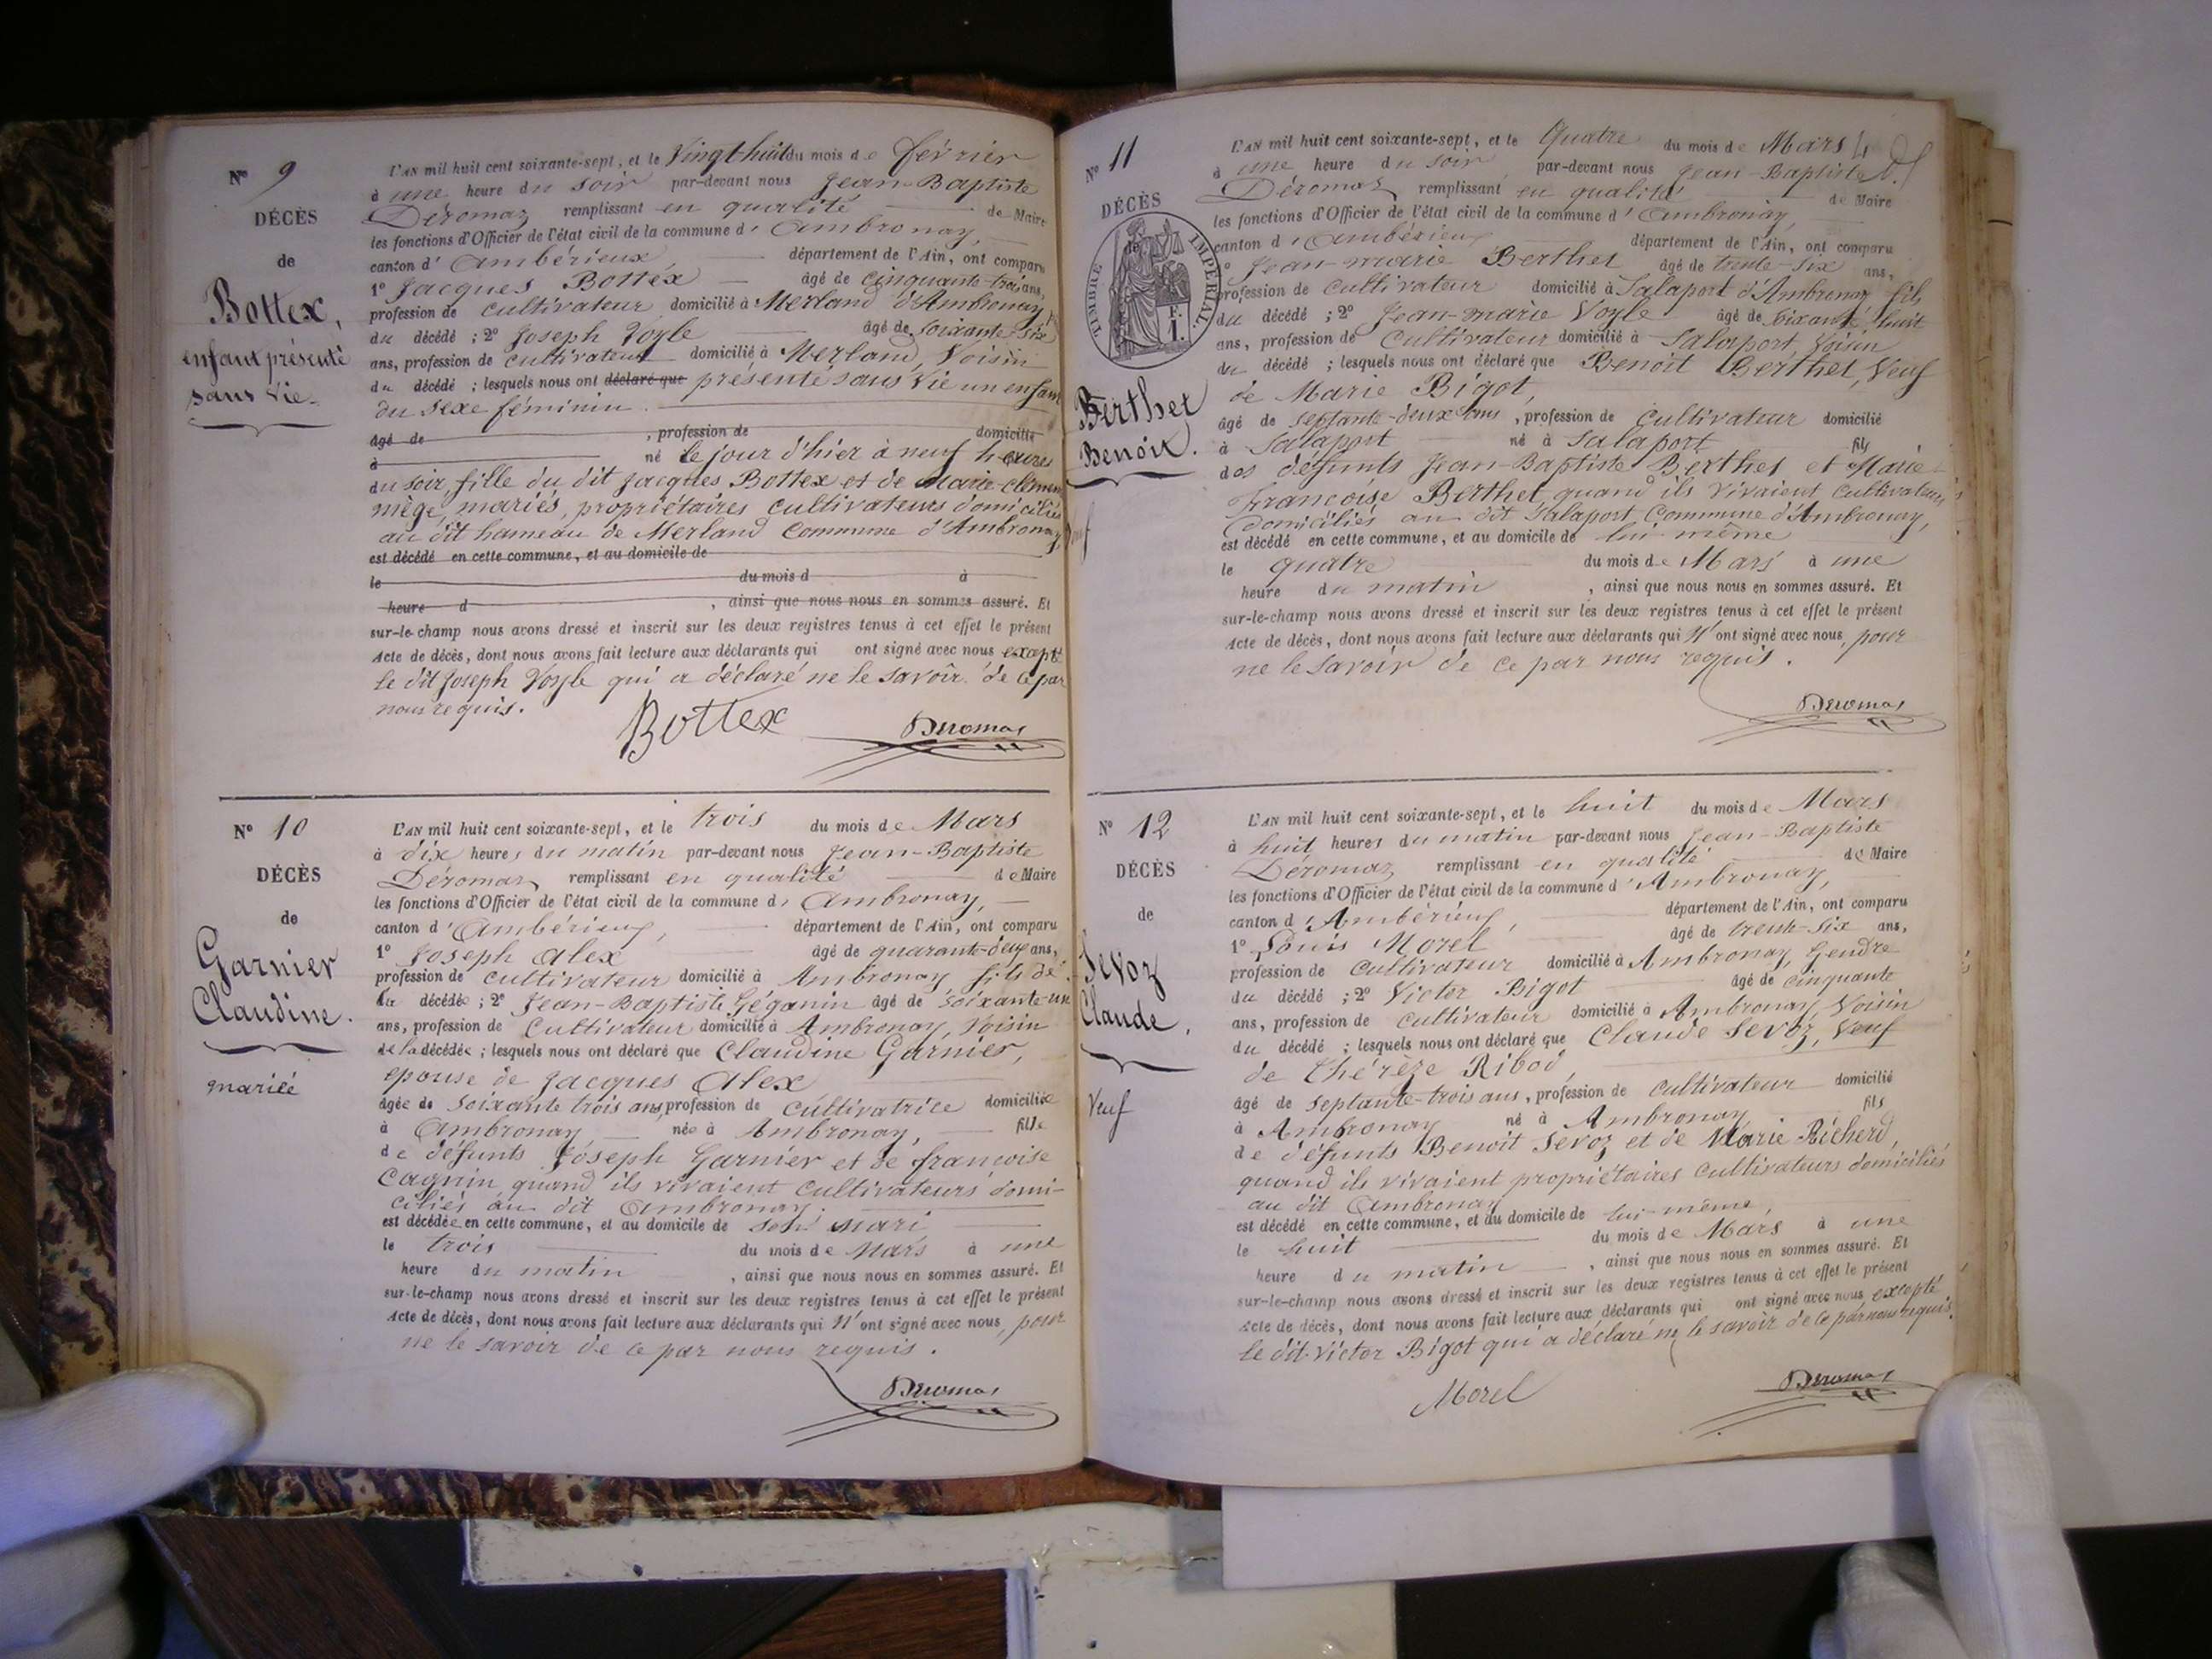 N° 9
DÉCÈS
de
Bottex,
enfant présenté
sans vie.
L'AN mil huit cent soixante-sept, et le Vingt-huit du mois de février
à une heure du soir par-devant nous Jean-Baptiste
Déromaz remplissant en qualité de Maire
les fonctions d'Officier de l'état civil de la commune d'Ambronay,
canton d'Ambérieux, département de l'Ain, ont comparu
1° Jacques Bottex âgé de cinquante-trois ans,
profession de cultivateur domicilié à Merland d'Ambronay,
du décédé ; 2° Joseph Voyle âgé de soixante six
ans, profession de cultivateur domicilié à Merland, Voisin
du décédé ; lesquels nous ont déclaré que présenté sans vie un enfant
du sexe féminin.
âgé de , profession de domicilié
à né le jour d'hier à neuf heures
du soir, fille du dit Jacques Bottex et de Marie-
miège, mariés, propriétaires cultivateurs domiciliés
au dit hameau de Merland Commune d'Ambronay,
est décédé en cette commune, et au domicile de
le du mois d à
heure d , ainsi que nous nous en sommes assuré. Et
sur-le-champ nous avons dressé et inscrit sur les deux registres tenus à cet effet le présent
Acte de décès, dont nous avons fait lecture aux déclarants qui ont signé avec nous excepté
le dit Joseph Voyle qui a déclaré ne le savoir de ce par
nous requis.
Bottex Deromas
N° 10
DÉCÈS
de
Garnier
Claudine.
mariée
L'AN mil huit cent soixante-sept, et le trois du mois de Mars
à dix heures du matin par-devant nous Jean-Baptiste
Déromaz remplissant en qualité de Maire
les fonctions d'Officier de l'état civil de la commune d'Ambronay,
canton d'Ambérieux, département de l'Ain, ont comparu
1° Joseph Alex âgé de quarante-deux ans,
profession de cultivateur domicilié à Ambronay fils de
la décédée ; 2° Jean-Baptiste Géganin âgé de soixante-un
ans, profession de Cultivateur domicilié à Ambronay, Voisin
de la décédée ; lesquels nous ont déclaré que Claudine Garnier,
epouse de Jacques Alex
âgée de soixante trois ans, profession de cultivatrice domiciliée
à Ambronay née à Ambronay, fille
de défunts Joseph Garnier et de françoise
Cagnin quand ils vivaient cultivateurs domi-
ciliés au dit Ambronay.
est décédée en cette commune, et au domicile de son mari
le trois du mois de Mars à une
heure du matin , ainsi que nous nous en sommes assuré. Et
sur-le-champ nous avons dressé et inscrit sur les deux registres tenus à cet effet le présent
Acte de décès, dont nous avons fait lecture aux déclarants qui n'ont signé avec nous, pour
ne le savoir de ce par nous requis.
Deromas
N° 11
DÉCÈS
TIMBRE IMPERIAL
F.
1.
Berthet
Benoit.
Veuf
L'AN mil huit cent soixante-sept, et le Quatre du mois de Mars
à une heure du soir par-devant nous Jean-Baptiste
Déromaz remplissant en qualité de Maire
les fonctions d'Officier de l'état civil de la commune d'Ambronay,
canton d'Ambérieux département de l'Ain, ont comparu
1° Jean-marie Berthet âgé de trente-six ans,
profession de cultivateur domicilié à Salaport d'Ambronay fils
du décédé ; 2° Jean-marie Voyle âgé de soixante huit
ans, profession de Cultivateur domicilié à Salaport Voisin
du décédé ; lesquels nous ont déclaré que Benoit Berthet, Veuf
de Marie Bigot,
âgé de septante-deux ans, profession de cultivateur domicilié
à Salaport né à Salaport fils
des défunts Jean-Baptiste Berthet et Marie
françoise Berthet quand ils vivaient Cultivateurs
Domiciliés au dit Salaport Commune d'Ambronay,
est décédé en cette commune, et au domicile de lui-même
le quatre du mois de Mars à une
heure du matin , ainsi que nous nous en sommes assuré. Et
sur-le-champ nous avons dressé et inscrit sur les deux registres tenus à cet effet le présent
Acte de décès, dont nous avons fait lecture aux déclarants qui n'ont signé avec nous, pour
ne le savoir de ce par nous requis.
Deromas
N° 12
DÉCÈS
de
Sevoz
Claude,
Veuf
L'AN mil huit cent soixante-sept, et le huit du mois de Mars
à huit heures du matin par-devant nous Jean-Baptiste
Déromaz remplissant en qualité de Maire
les fonctions d'Officier de l'état civil de la commune d'Ambronay,
canton d'Ambérieux, département de l'Ain, ont comparu
1° Louis Morel âgé de trente-six ans,
profession de Cultivateur domicilié à Ambronay, Gendre
du décédé ; 2° Victor Bigot âgé de cinquante
ans, profession de cultivateur domicilié à Ambronay, Voisin
du décédé ; lesquels nous ont déclaré que Claude Sevoz, Veuf
de Thérèze Ribod,
âgé de septante-trois ans, profession de cultivateur domicilié
à Ambronay né à Ambronay fils
de défunts Benoit Sevoz et de Marie Richerd,
quand ils vivaient propriétaires cultivateurs domiciliés
au dit Ambronay
est décédé en cette commune, et au domicile de lui-même,
le huit du mois de Mars à une
heure du matin , ainsi que nous nous en sommes assuré. Et
sur-le-champ nous avons dressé et inscrit sur les deux registres tenus à cet effet le présent
Acte de décès, dont nous avons fait lecture aux déclarants qui ont signé avec nous excepté
le dit Victor Bigot qui a déclaré ne le savoir de ce par nous requis.
Morel Deromas